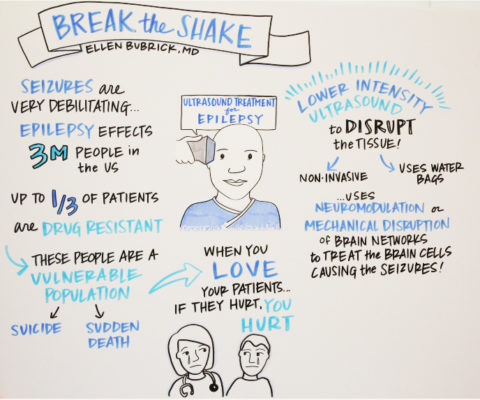 BREAK the SHAKE
ELLEN BUBRICK, MD
SEIZURES are
VERY DEBILITATING...
EPILEPSY EFFECTS
3M PEOPLE in
the US
UP TO 1/3 OF PATIENTS
are DRUG RESISTANT
THESE PEOPLE ARE A
VULNERABLE
POPULATION
SUICIDE
SUDDEN
DEATH
ULTRASOUND TREATMENT
for
EPILEPSY
WHEN YOU
LOVE
YOUR PATIENTS...
IF THEY HURT, YOU
HURT
LOWER INTENSITY
ULTRASOUND
to DISRUPT
the TISSUE!
NON-INVASIVE
USES WATER
BAGS
...USES
NEUROMODULATION or
MECHANICAL DISRUPTION
OF BRAIN NETWORKS
to TREAT the BRAIN CELLS
CAUSING the SEIZURES!